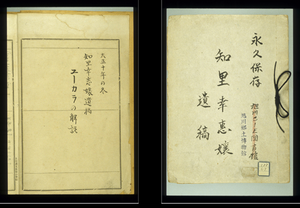 大正十年の冬
知里幸惠孃遺稿
ユーカラの解説
永久保存
知里幸惠孃
遺稿
旭川郷土博物館